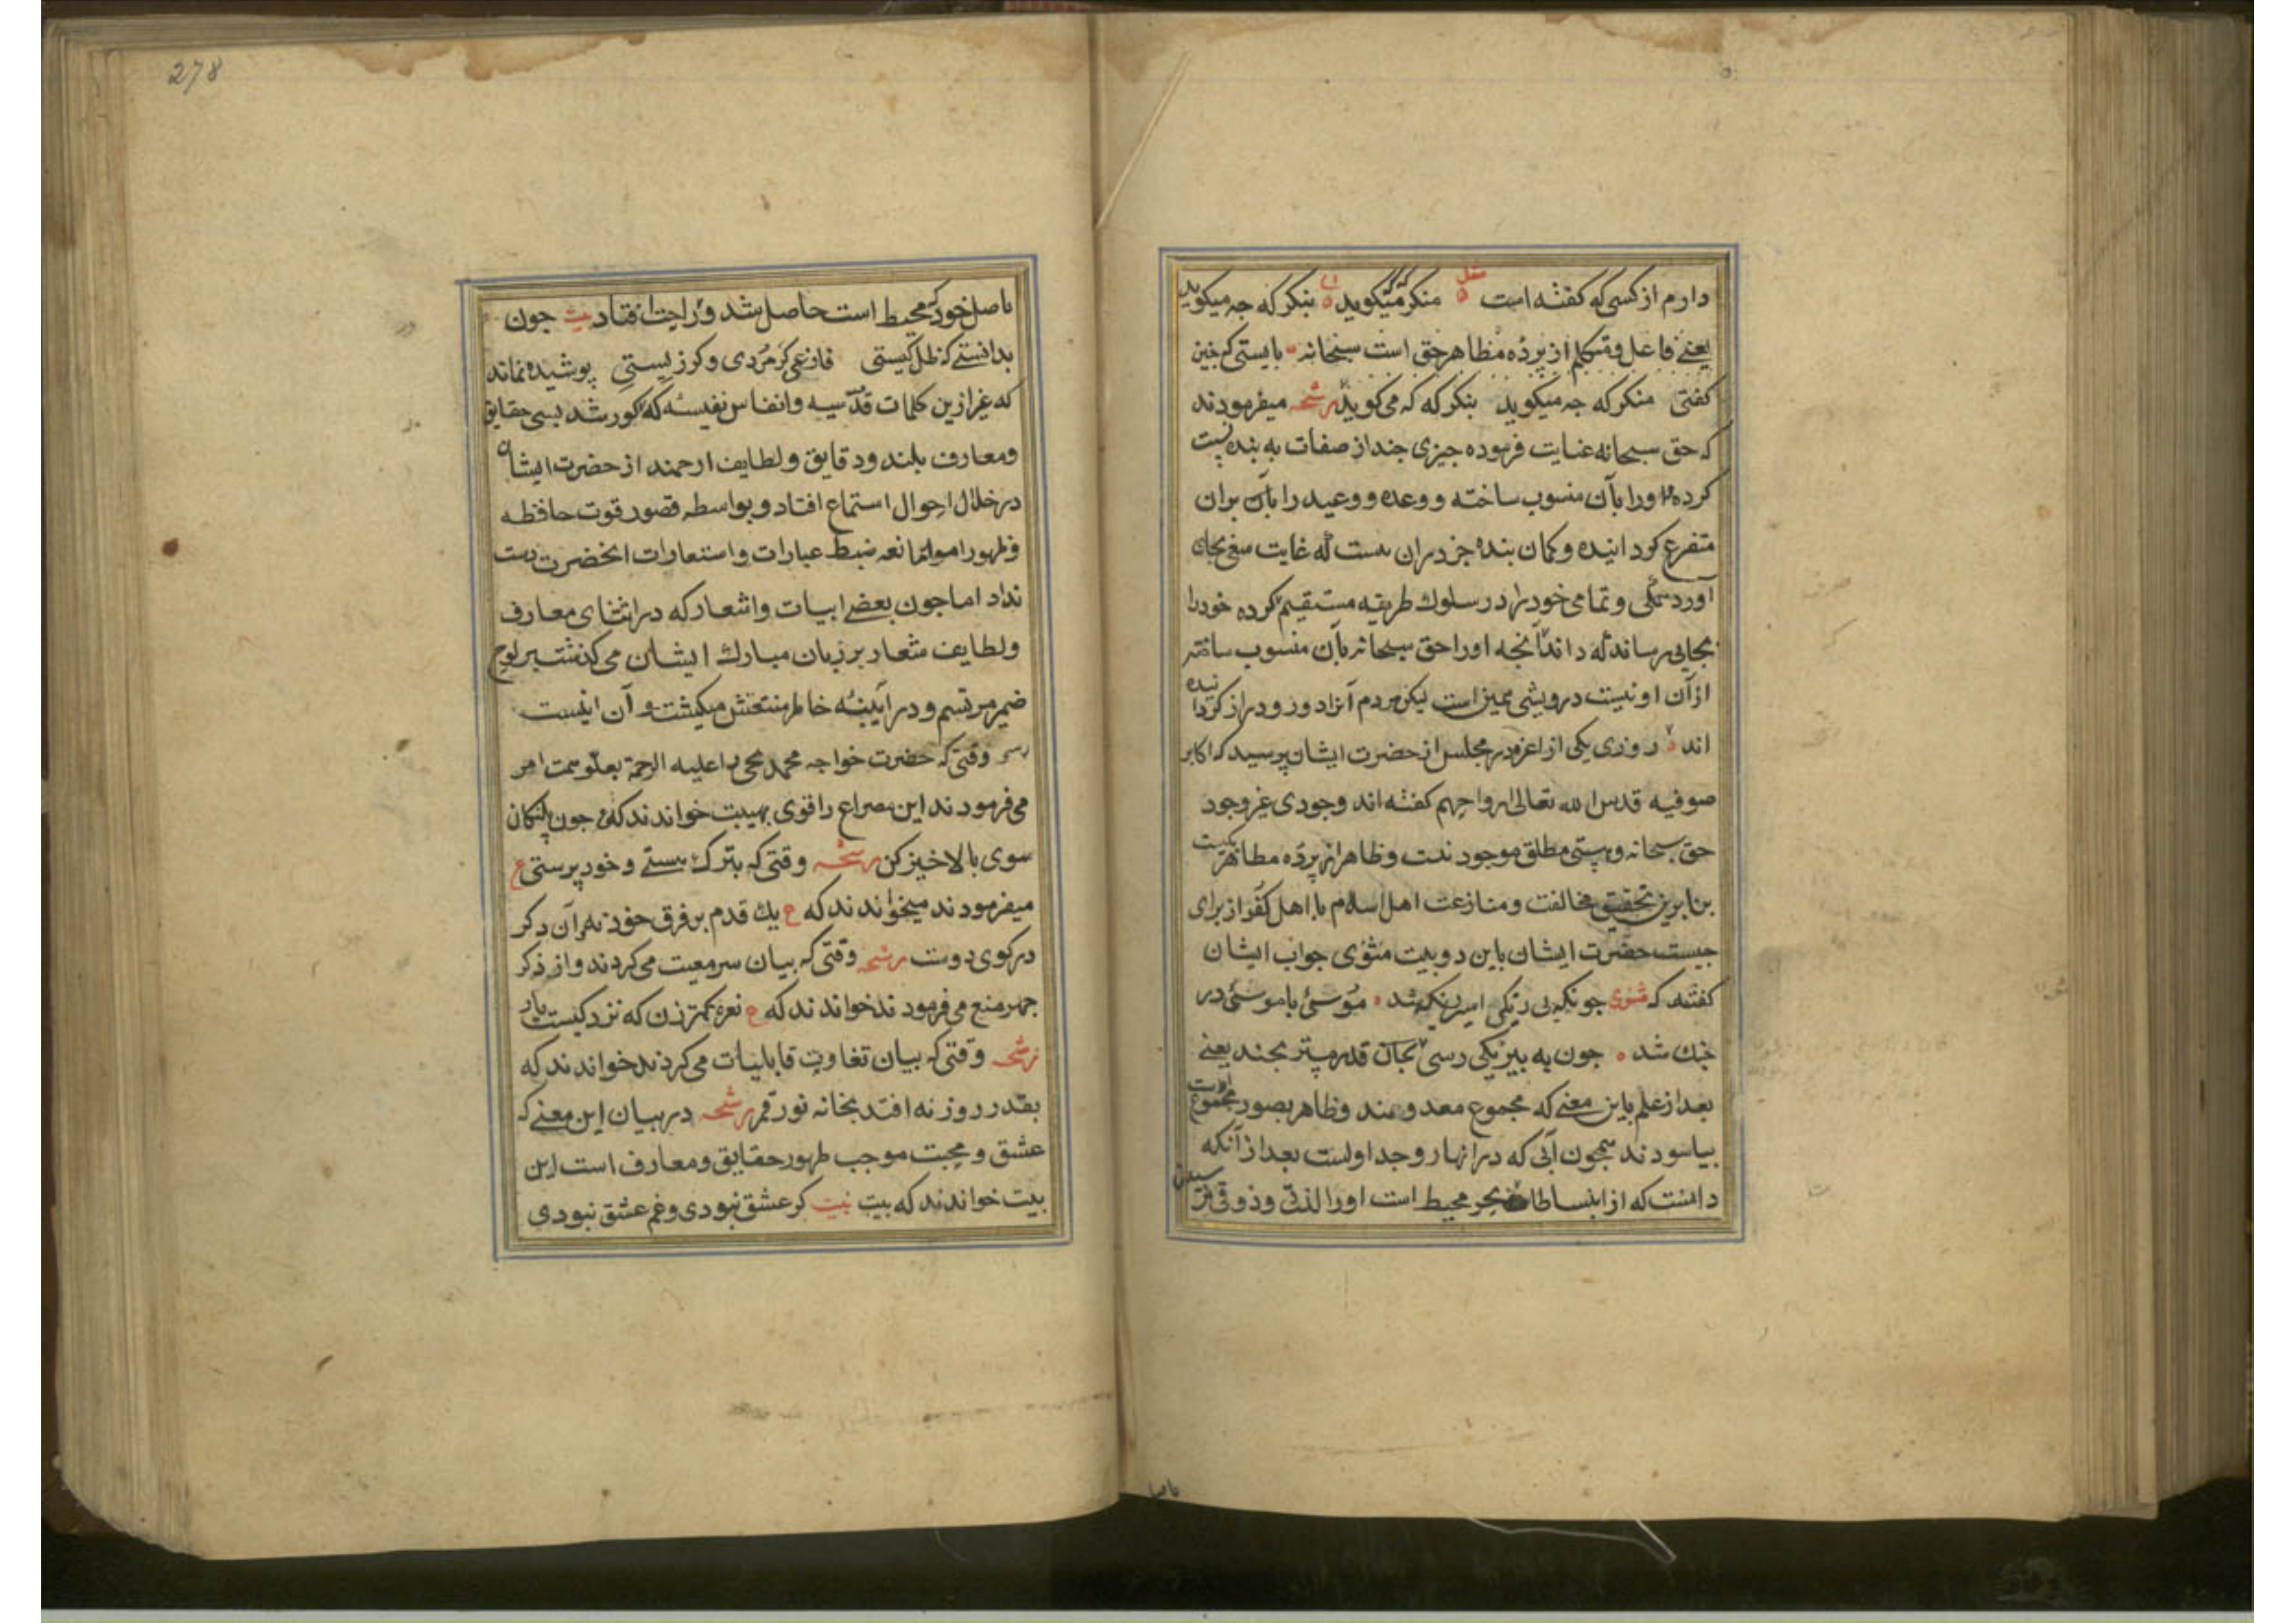 دارم از کسی که کفته است منکر که میکوید بنکر که جه میکوید
یعنے فاعل و متکلم از پرده مظاهر حق است سبحانه بایستی که جنین
کفتی منکر که جه میکوید بنکر که که می کوید رشحه میفرمودند
که حق سبحانه عنایت فرموده جیزی جند از صفات به بنده نسبت
کرده اورا بآن منسوب ساخته و وعده و وعید را بآن بران
متفرع کردانیده و کمان بنده جز دران نیست که غایت سعی بجای
آورد و تمامی خود را در سلوك طریقه مستقیم کرده خود را
بجایی رساند که داند آنجه اورا حق سبحانه بآن منسوب ساخته
از آن او نیست درویشی همین است لیکن مردم آنرا دور و دراز کردانیده
اند روزی یکی از اعزه در مجلس از حضرت ایشان پرسید که اکابر
صوفیه قدس الله تعالی ارواحهم کفته اند وجودی غیر وجود
حق سبحانه و هستی مطلق موجود نیست و ظاهر از پرده مظاهر یکیست
بنابرین تحقیق مخالفت و منازعت اهل اسلام با اهل کفر از برای
جیست حضرت ایشان باین دو بیت مثنوی جواب ایشان
کفته که مثنوی جونکه بی رنکی اسیر رنک شد موسئ با موسئ در
جنك شد جون به بیرنکی رسی کان
بعد از علم باین معنے که مجموع معدومند و ظاهر بصور مجموع اوست
بیاسودند همجون آبی که در انهار و جداولست بعد از آنکه
دانست که از انبساطات بحر محیط است اورا لذتی و ذوقی
باصل
278
باصل خود که محیط است حاصل شد و راحت افتاد بیت جون
بدانستے که ظل کیستی فارغی کر مردی و کر زیستی پوشیده نماند
که غیر ازین کلمات قدسیه و انفاس نفیسه که مذکور شد بسی حقایق
و معارف بلند و دقایق و لطایف ارجمند از حضرت ایشان
در خلال احوال استماع افتاد و بواسطه قصور قوت حافظه
و ظهور امور مانعه ضبط عبارات و استعارات انحضرت دست
نداد اما جون بعضے ابیات و اشعار که در اثنای معارف
و لطایف شعار بر زبان مبارك ایشان می کذشت بر لوح
ضمیر مرتسم و در آیینه خاطر منتقش میکشت و آن اینست
وقتی که حضرت خواجه محمد یحیی را علیه الرحمة بعلو همت امر
می فرمودند این مصراع را قوی بهیبت خواندند که ع جون پلنکان
سوی بالا خیز کن رشحه وقتی که بترك هستے و خود پرستی ع
میفرمودند میخواندند که ع یك قدم بر فرق خود نه وآن دکر
در کوی دوست رشحه وقتی که بیان سر معیت می کردند و از ذکر
جهر منع می فرمودند خواندند که ع نعره کمتر زن که نزدکیست یار
رشحه وقتی که بیان تفاوت قابلیات می کردند خواندند که
بقدر روزنه افتد بخانه نور قمر رشحه در بیان این معنے که
عشق و محبت موجب ظهور حقایق و معارف است این
بیت خواندند که بیت بیت کر عشق نبودی و غم عشق نبودی